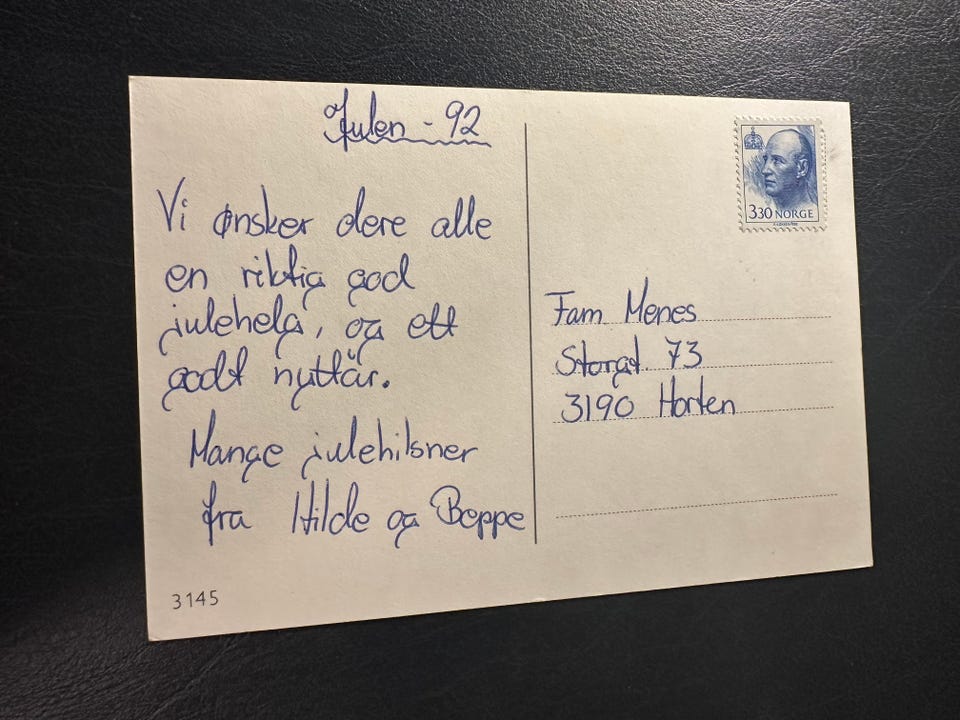 Julen - 92
Vi ønsker dere alle
en riktig god
julehelg, og ett
godt nyttår.
Mange julehilsner
fra Hilde og Beppe
3145
330 NORGE
Fam. Menes
Storgt. 73
3190 Horten